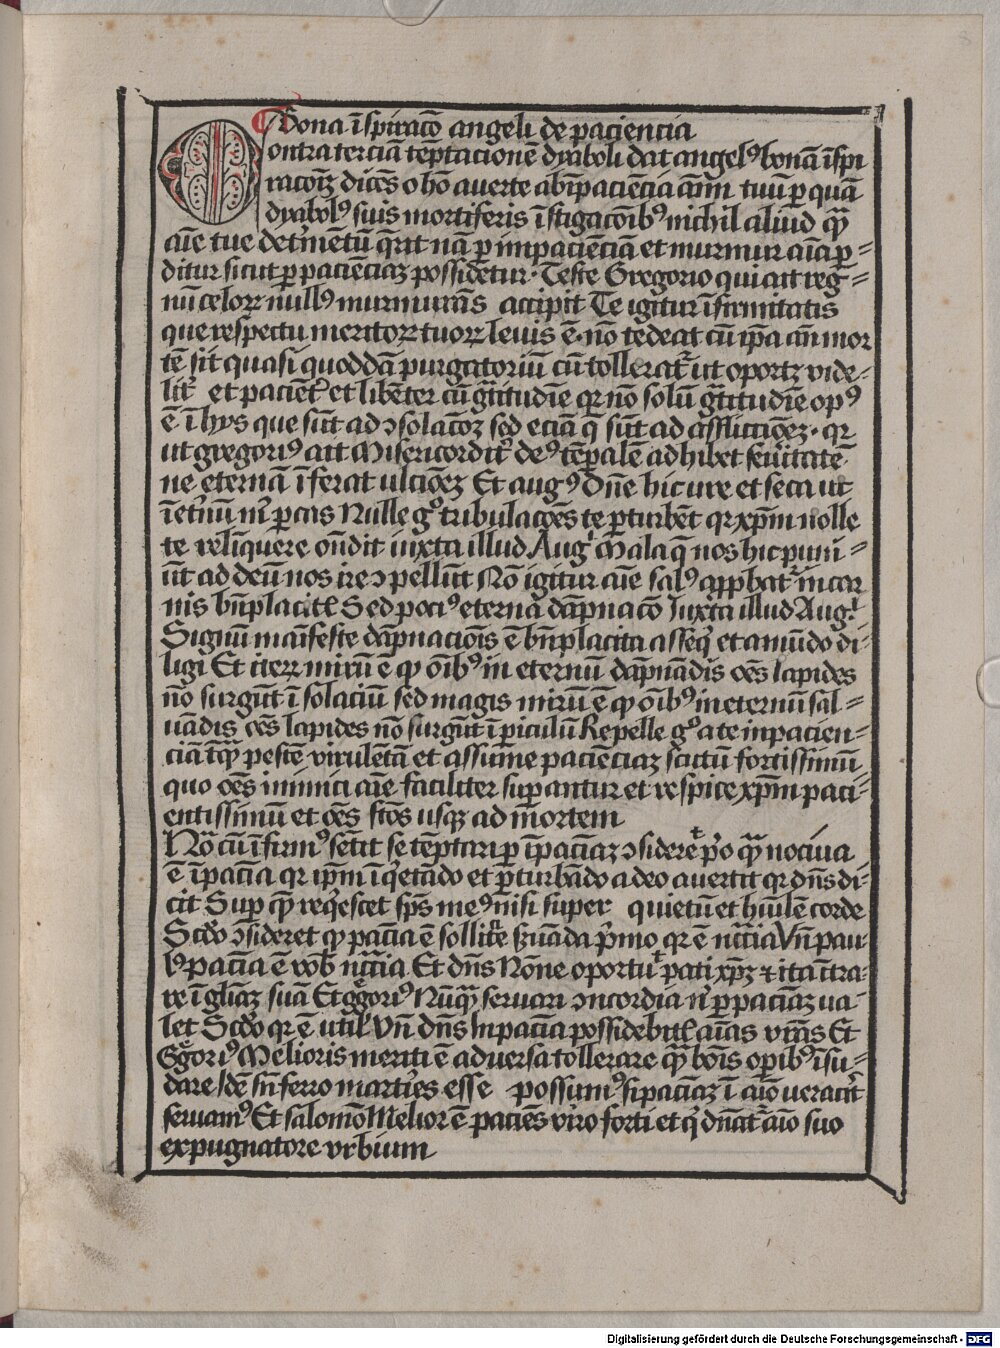 Bona īspiracō angeli de paciencia
Contra terciā tēptacionē dyaboli dat angelꝰ bonā īspi
racōꝫ dicēs o hō averte ab īpaciēcia aīm tuū ꝑ quā
dyabolꝰ suis mortiferis īstigacōibꝰ nichil aliud qᷓ
aīe tue detͥmētū q̄rit nā ꝑ impaciēciā et murmur aīa ꝑ=
ditur sicut ꝑ paciēciaꝫ possidetur. Teste Gregorio qui ait reg=
nū celoꝝ nullꝰ murmurās accipit Te igitur īfirmitatis
que respectu meritoꝝ tuoꝝ levis ē. nō tedeat cū ip̄a an̄ mor
tē sit quasi quoddā purgatoriū cū tolleratᷣ ut oportꝫ vide-
litꝫ et paciēt᷑ et libēter cū gͣtitudīe qꝛ nō solū gͣtitudīe opꝰ
ē ī hys que sūt ad ↄsolacōꝫ sed eciā q̄ sūt ad afflictiōeꝫ. qꝛ
ut gregoriꝰ ait Misericordit᷑ deꝰ tēꝑalē adhibet sev᷑itatē
ne eternā īferat ulciōeꝫ Et augꝰ Dn̄e hic ure et seca ut
īet᷑nū m̄ ꝑcas Nulle gͦ tribulacōes te ꝑturbēt qꝛ xp̄m nolle
te relīquere on̄dit iuxta illud Augͥ Mala q̄ nos hic puni=
ūt ad deū nos ire ↄpellūt Nō igitur aīe salꝰ ap̄p̄batᷣ in car
nis bn̄placitꝭ Sed pociꝰ eterna dāpnacō Juxta illud Augͥ.
Signū maīfeste dāpnaciōis ē bn̄placita asseq̄ et a mūdo di-
ligi Et iteꝝ mirū ē ꝙ oībꝰ in eternū dāpnādis oēs lapides
nō surgūt ī solaciū sed magis mirū ē ꝙ oībꝰ in eternū sal=
vādis oēs lapides nō surgūt ī piculū Repelle gͦ a te inpacien=
ciā tāqͣꝫ pestē virulētā et assume paciēciaꝫ scutū fortissimū
quo oēs inimici aīe faciliter suꝑantur et respice xp̄m paci-
entissimū et oēs sc̄os usqꝫ ad mortem
Nō cū īfirmꝰ sētit se tēptari ꝑ īpaciāꝫ ↄsideret p᷑o qᷓ nociva
ē īpacia qꝛ ip̄m īq̄etādo et ꝑturbādo a deo avertit qꝛ dn̄s di-
cit Suꝑ quē req̄escet sp̄s meꝰ nisi super quietū et hūilē corde
Scd̄o ↄ̄sideret ꝙ pacia ē sollit᷑e ẜuāda pͥmo qꝛ ē nc̄cīa Vn̄ pau-
lꝰ pacia ē vob̄ nc̄cīa Et dn̄s Nōne oportuͭ pati xp̄ꝫ ⁊ ita ītra-
re ī glīaꝫ suā Et gͤgoriꝰ Nūqᷓ servari ↄncordia nͥ ꝑ paciāꝫ va-
let Scd̄o qꝛ ē utilꝭ Vn̄ dn̄s In pacia possidebitꝭ aīas vr̄as Et
Gͤgoriꝰ Melioris meriti ē adversa tollerare qᷓ boīs oꝑibꝰ īsu-
dare Idē sn̄ ferro martires esse possumꝰ si paciāꝫ ī aīo veracit᷑
servamꝰ Et salomō Melior ē paciēs viro forti et qͥ dn̄atᷣ aīo suo
expugnatore vrbium
Digitalisierung gefördert durch die Deutsche Forschungsgemeinschaft - DFG